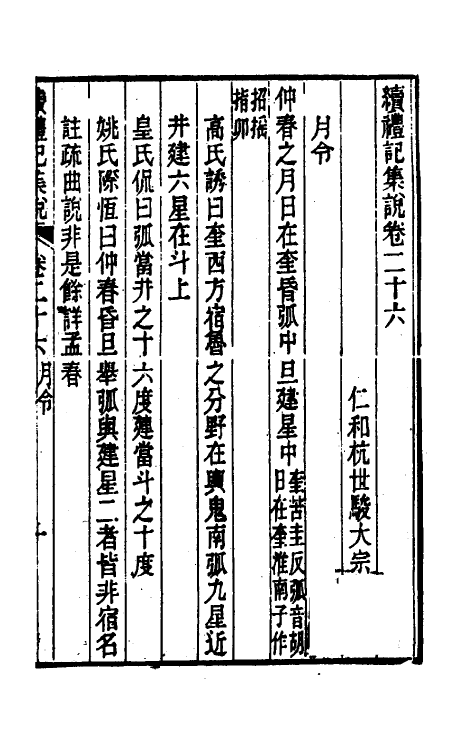 續禮記集說卷二十六
仁和杭世駿大宗
月令
仲春之月日在奎昏弧中旦建星中奎苦圭反弧音胡
日在奎淮南子作
招摇
指卯
高氏誘曰奎西方宿魯之分野在輿鬼南弧九星近
井建六星在斗上
皇氏侃曰弧當井之十六度建當斗之十度
姚氏際恒曰仲春昏旦舉弧與建星二者皆非宿名
註疏曲說非是餘詳孟春
續禮記集說 卷二十六 月令 一